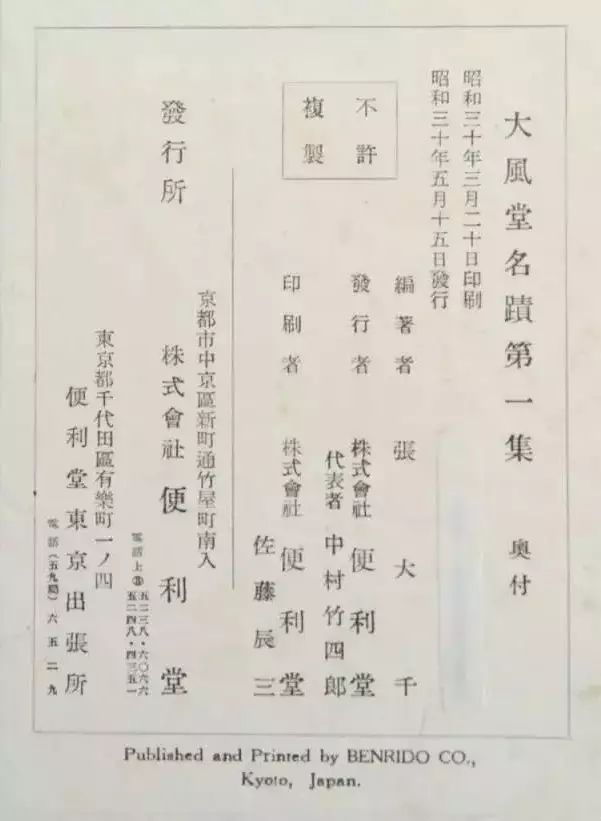 大風堂名蹟第一集 奥付
昭和三十年三月二十日印刷
昭和三十年五月十五日發行
不許
複製
編著者 張大千
發行者 株式會社 便利堂
代表者 中村竹四郎
印刷者 株式會社 便利堂
佐藤辰三
京都市中京區新町通竹屋町南入
發行所 株式會社 便利堂
電話上③五二三八・六〇六六
五二四八・四三五一
東京都千代田區有樂町一ノ四
便利堂東京出張所
電話(五九局)六五二九
Published and Printed by BENRIDO CO.,
Kyoto, Japan.